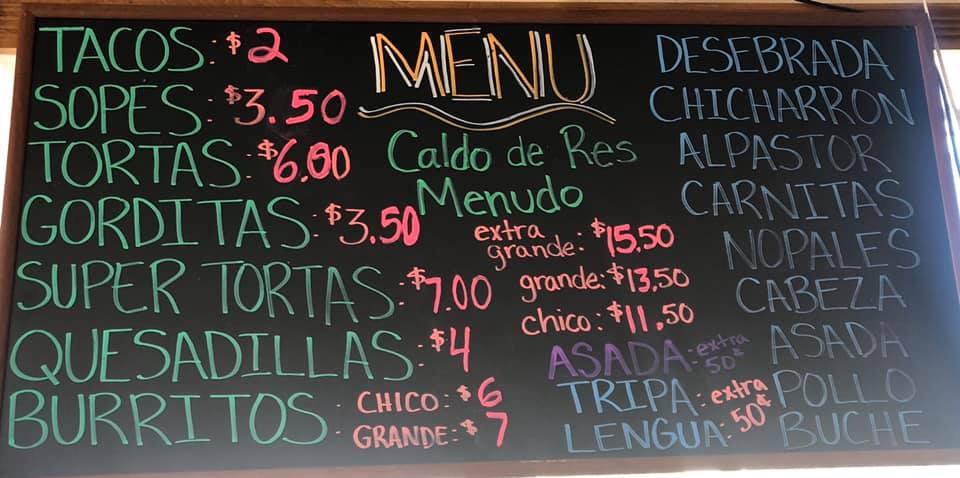 TACOS: $2
SOPES: $3.50
TORTAS: $6.00
GORDITAS: $3.50
SUPER TORTAS: $7.00
QUESADILLAS: $4
BURRITOS: CHICO: $6
GRANDE: $7
MENU
Caldo de Res
Menudo
extra
grande: $15.50
grande: $13.50
chico: $11.50
ASADA: extra
50¢
TRIPA: extra
LENGUA: 50¢
DESEBRADA
CHICHARRON
ALPASTOR
CARNITAS
NOPALES
CABEZA
ASADA
POLLO
BUCHE